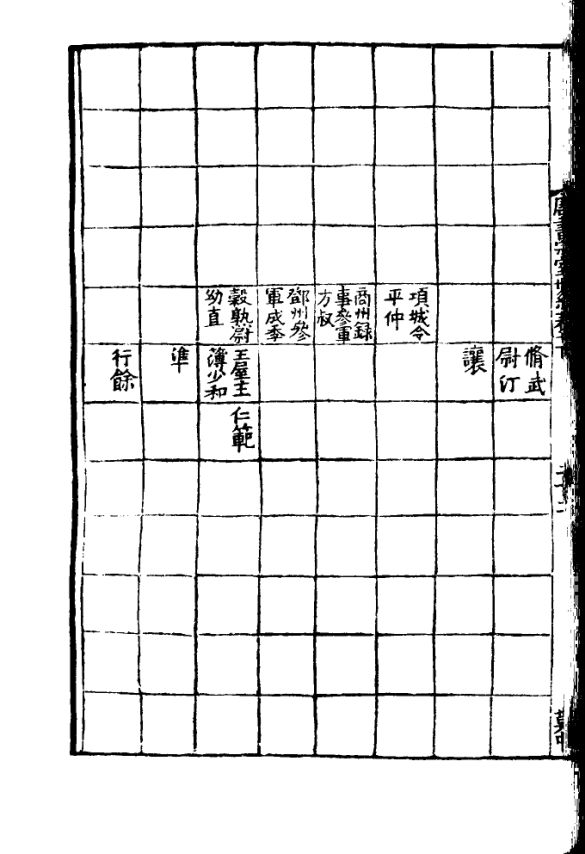 脩武
尉汀
讓
項城令
平仲
商州錄
事參軍
方叔
鄧州參
軍成季
穀熟尉
幼直
王屋主
簿少和
仁範
準
行餘